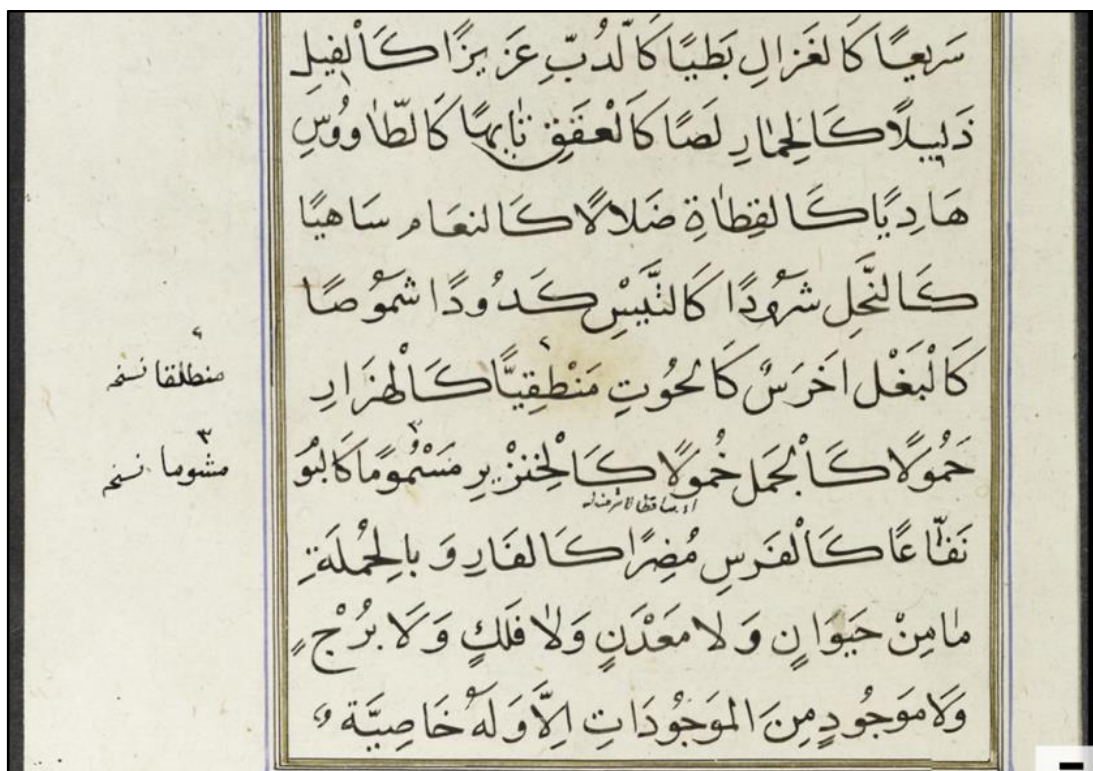 سَرِيعًا كَالغَزَالِ بَطِيًا كَالدُّبِّ عَزِيزًا كَالْفِيلِ
ذَلِيلًا كَالحِمَارِ لصًا كَالْعَقعَقِ تَايهًا كَالطَّاووُسِ
هَادِيًا كَالقِطَاةِ ضَلالًا كَالنعَام سَاهِيًا
كَالنَّحْلِ شَرُودًا كَالتَّيْسِ كَدُودًا شَمُوصًا
منطلقا نسخه
كَالْبَغْل اَخرَسٌ كَالحُوتِ مَنْطِقِيًّا كَالْهَزَارِ
مشوما نسخه
حَمُولًا كَالْجَمَل خُمولًا كَالْخِنْزِيرِ مَسْمُومًا كَالبُو
نَفَّاعًا كَالْفَرسِ مُضِرًا كَالفَارِ وَبِالجُمْلَةِ
مَامِنْ حَيَوَانٍ وَلا مَعْدَنٍ وَلَا فَلَكٍ وَلَا بُرْجٍ
وَلَا مَوجُودٍ مِنَ المَوجُودَاتِ اِلَّا وَلَهُ خَاصِيَّة